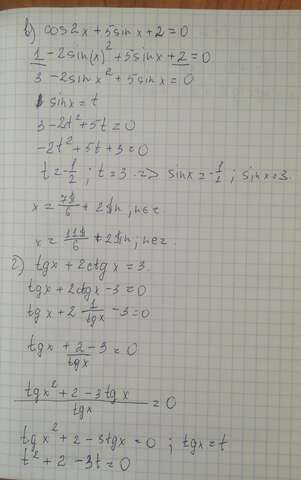 в) cos2x + 5sinx + 2 = 0
1 - 2sin(x)² + 5sinx + 2 = 0
3 - 2sinx² + 5sinx = 0
sinx = t
3 - 2t² + 5t = 0
-2t² + 5t + 3 = 0
t = -1/2 ; t = 3 => sinx = -1/2 ; sinx = 3.
x = 7π/6 + 2πn, n∈z
x = 11π/6 + 2πn, n∈z.
г) tgx + 2ctgx = 3.
tgx + 2ctgx - 3 = 0
tgx + 2 1/tgx - 3 = 0
tgx + 2 - 3/tgx = 0
tgx² + 2 - 3tgx/tgx = 0
tgx² + 2 - 3tgx = 0 ; tgx = t
t² + 2 - 3t = 0